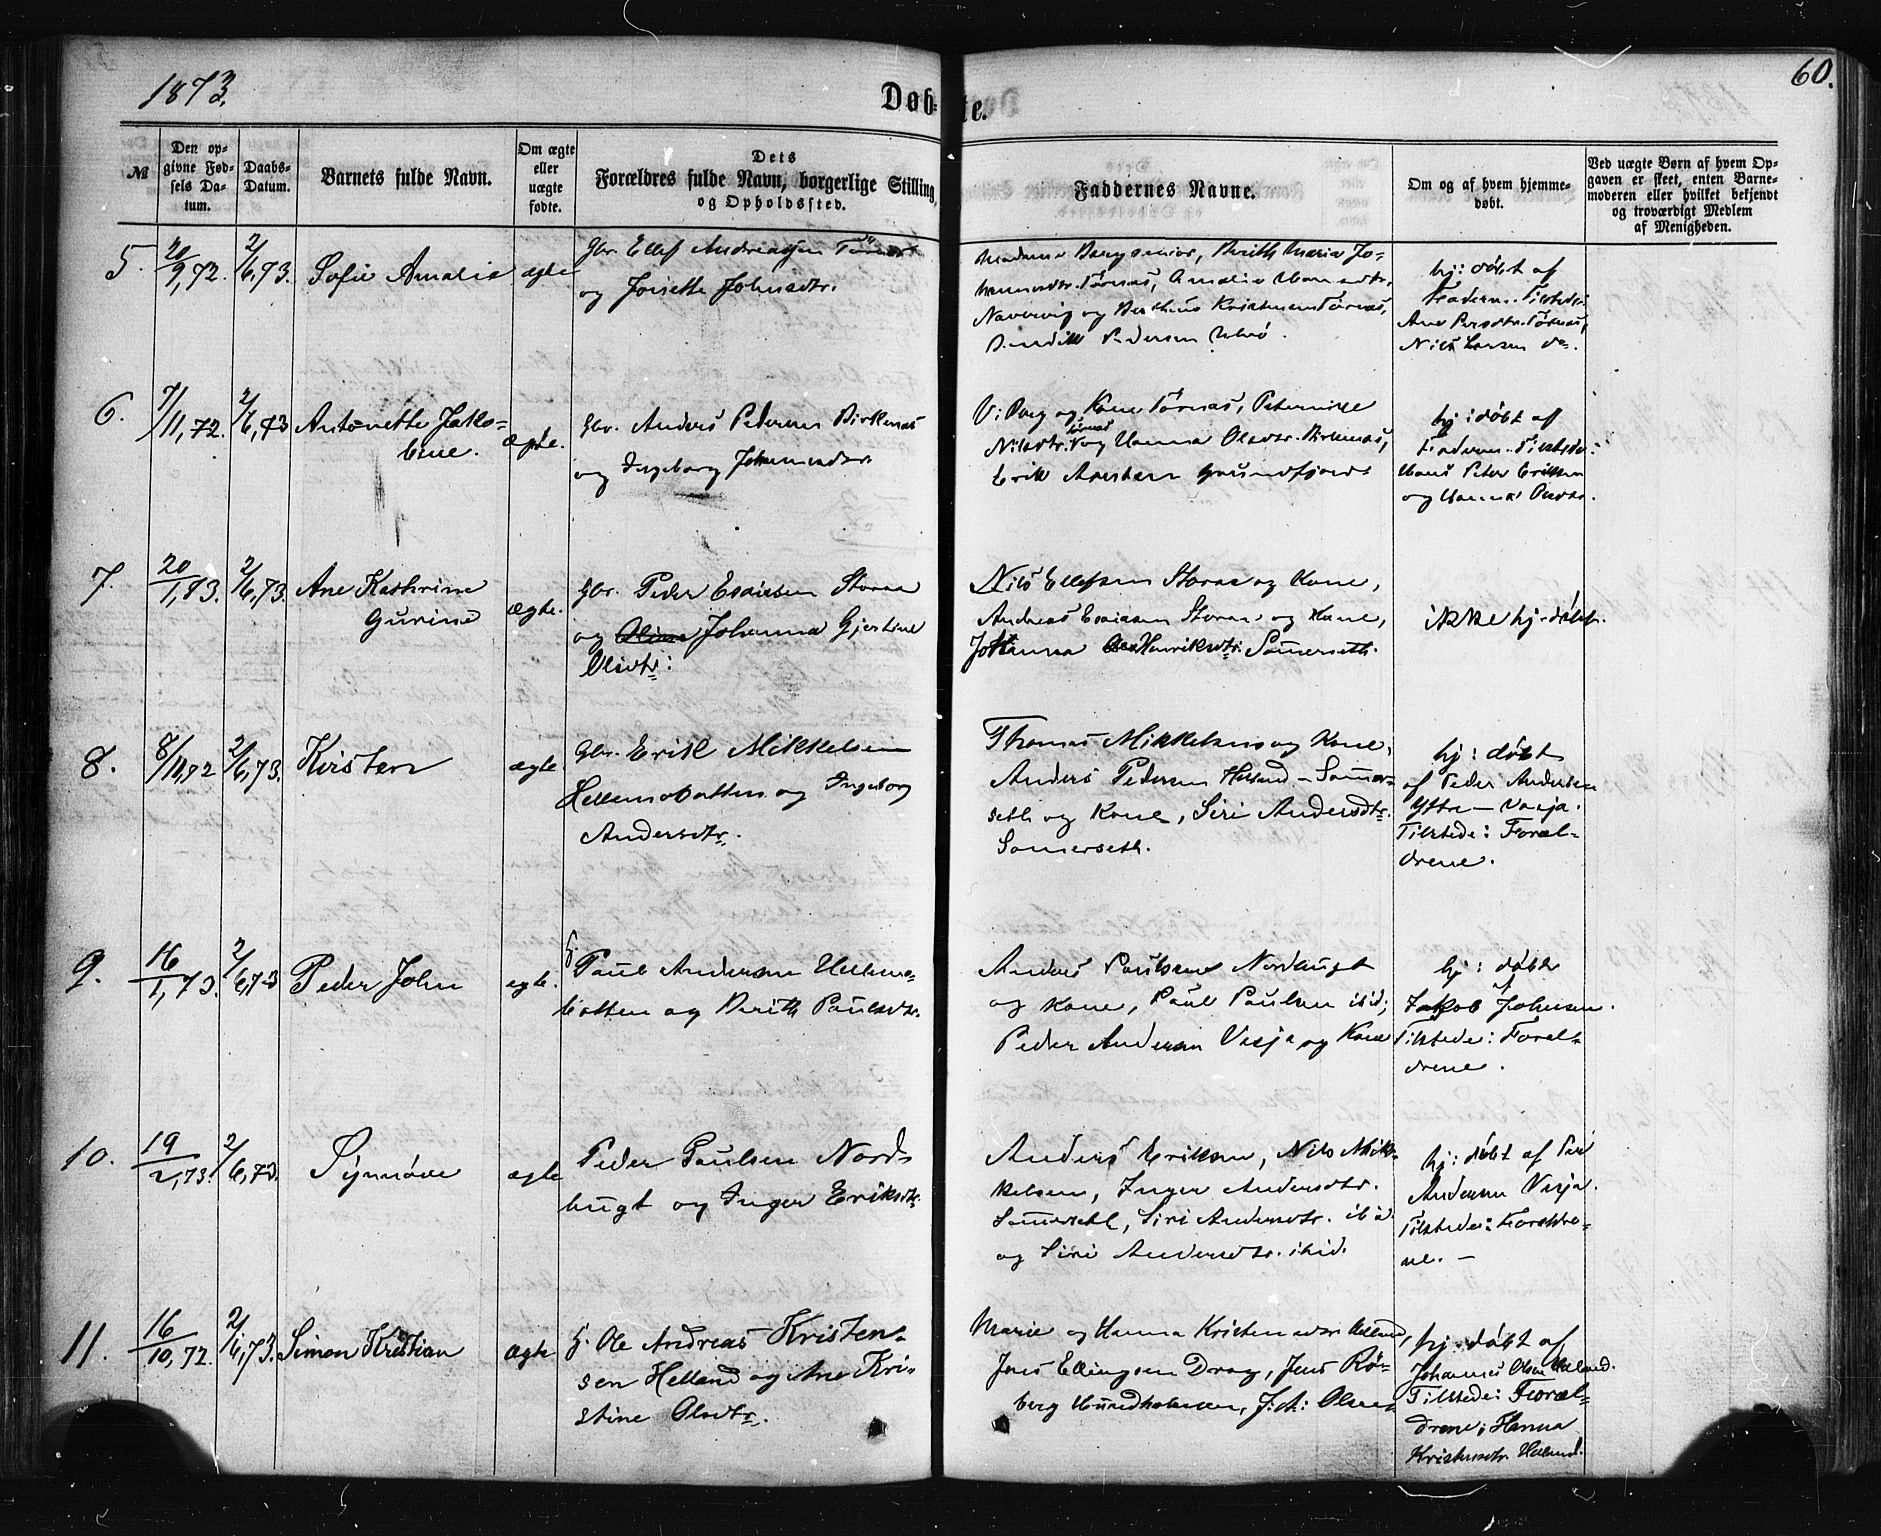 1873.
Døb-
te.
60.
№
Den op-
givne Fød-
sels Da-
tum.
Daabs-
Datum.
Barnets fulde Navn.
Om ægte
eller
uægte
fødte.
Dets
Forældres fulde Navn, borgerlige Stilling,
og Opholdssted.
Faddernes Navne.
Om og af hvem hjemme-
døbt.
Ved uægte Børn af hvem Op-
gaven er skeet, enten Barne-
moderen eller hvilket bekjendt
og troværdigt Medlem
af Menigheden.
5. 20/9,72. 2/6,73. Sofie Amalie ægte
Gbr. Ellef Andreassen
og Josette Johnsdtr.
Madame Berg senior, Berith Maria Jo-
Tørnæs, Amalie
og Bertheus Kristensen Tørnæs,
Pedersen
hj: døbt af
Tilstede:
Ane Persdtr. Tørnæs,
Nils Larsen do.
6. 7/11,72. 2/6,73 Antonette Jako-
bine. ægte.
Gbr. Anders Pedersen Birkenæs
og Ingeborg Johannesdtr.
Berg og Kone Tørnæs,
Nilsdtr. Tørnæs og Hanna Olsdtr. Birkenæs,
Erik
hj: døbt af
Tilstede:
Hans Peter Eriksen
og Hanna Olsdtr.
7. 20/1,73. 2/6,73. Ane Kathrine
Gurine ægte.
Gbr. Peder Esaiassen Storaa
og Johanna Gjertine
Olsdtr:
Nils Ellefsen Storaa og Kone,
Andreas Esaiassen Storaa og Kone,
Johanna Henriksdtr: Sommerseth.
ikke hj. døbt.
8. 8/11,72 2/6,73. Kirsten ægte.
Gbr. Erik Mikkelsen
Hellemobotten og Ingeborg
Andersdtr.
Thomas Mikkelsen og Kone,
Anders Pedersen Helland - Sommer-
seth og Kone, Siri Andersdtr.
Somerseth.
hj: døbt
af Peder Andersen
Tilstede: Foræl-
drene.
9. 16/1,73. 2/6,73 Peder John ægte.
G. Paul Andersen Hellemo-
botten og Berith Paulsdtr.
Anders Paulsen Nordbugt
og Kone, Paul Paulsen ibid;
Peder Andersen Vasja og Kone
hj: døbt
af
Jakob Johnsen.
Tilstede: Foræl-
drene.
10. 19/2,73. 2/6,73. Synnøve ægte
Peder Paulsen Nord-
bugt og Inger Eriksdtr.
Anders Eriksen, Nils Mik-
kelsen, Inger Andersdtr.
Somerseth, Siri Andersdtr. ibid
og Siri Andersdtr. ibid.
hj: døbt af Per
Andersen Vasja.
Tilstede: Forældre-
ne. —
11. 16/10,72. 2/6,73. Simon Kristian ægte
G. Ole Andreas Kristen-
sen Helland og Ane Kri-
stine Olsdtr.
Marie og Hanna Kristensdtr. Helland,
Jens Ellingsen Drag, Jens Rø-
berg Hundholmen, J. A: Olsen
hj. døbt af
Johannes Olsen Helland.
Tilstede: Foræl-
drene; Hanna
Kristensdtr. Helland.